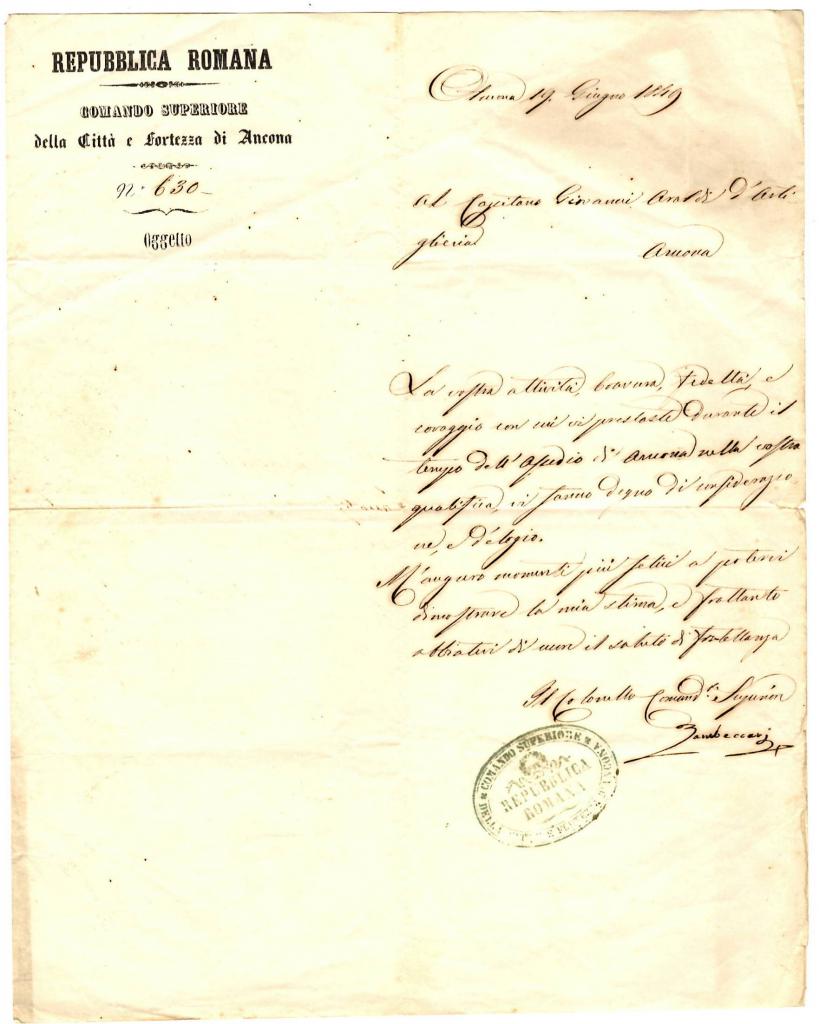 REPUBBLICA ROMANA
COMANDO SUPERIORE
della Città e Fortezza di Ancona
N.° 630
Oggetto
Ancona 19. Giugno 1849
Al Capitano Giovanni Araldi d'Arti
glieria
Ancona
La vostra attività, bravura, fedeltà, e
coraggio con cui vi prestaste durante il
tempo dell'Assedio di Ancona nella vostra
qualifica, vi fanno degno di considerazio
ne, e d'elogio.
M'auguro momenti più felici a potervi
dimostrare la mia stima, e frattanto
abbiatevi di cuore il saluto di fratellanza
Il Colonello Comand.te Superiore
Zambeccari
COMANDO SUPERIORE
DELLA CITTÀ E FORTEZZA DI ANCONA
REPUBBLICA
ROMANA